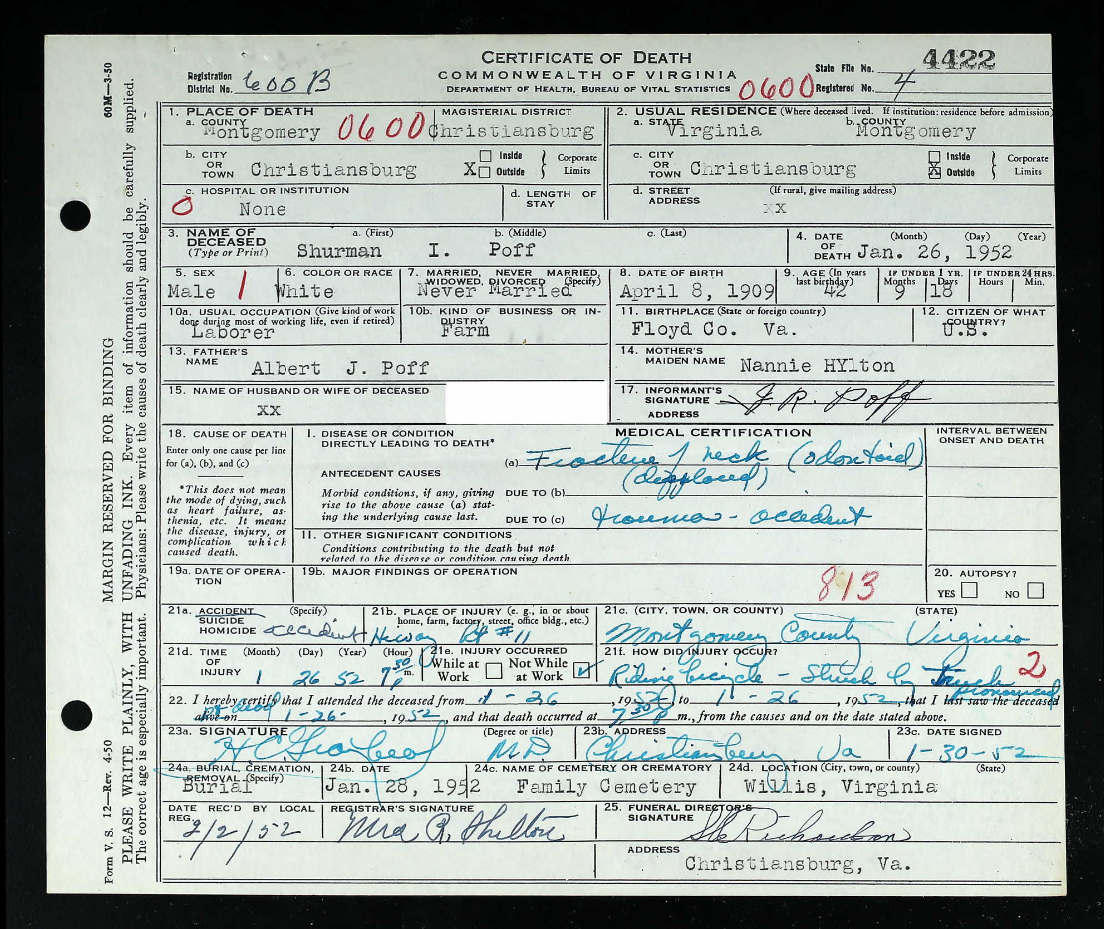 CERTIFICATE OF DEATH
COMMONWEALTH OF VIRGINIA
DEPARTMENT OF HEALTH, BUREAU OF VITAL STATISTICS
Registration District No. 600 B
0600
State File No. 4422
Registered No. 4
1. PLACE OF DEATH
a. COUNTY Montgomery 0600
MAGISTERIAL DISTRICT Christiansburg
2. USUAL RESIDENCE (Where deceased lived. If institution: residence before admission)
a. STATE Virginia b. COUNTY Montgomery
b. CITY OR TOWN Christiansburg X Inside Outside Corporate Limits
c. CITY OR TOWN Christiansburg Inside X Outside Corporate Limits
c. HOSPITAL OR INSTITUTION
0 None
d. LENGTH OF STAY
d. STREET ADDRESS (If rural, give mailing address)
xx
3. NAME OF DECEASED (Type or Print) a. (First) b. (Middle) c. (Last)
Shurman I. Poff
4. DATE OF DEATH (Month) (Day) (Year)
Jan. 26, 1952
5. SEX Male 1
6. COLOR OR RACE White
7. MARRIED, NEVER MARRIED, WIDOWED, DIVORCED (Specify) Never Married
8. DATE OF BIRTH April 8, 1909
9. AGE (In years last birthday) 42
IF UNDER 1 YR. Months 9 Days 18
IF UNDER 24 HRS. Hours Min.
10a. USUAL OCCUPATION (Give kind of work done during most of working life, even if retired)
Laborer
10b. KIND OF BUSINESS OR INDUSTRY
Farm
11. BIRTHPLACE (State or foreign country)
Floyd Co. Va.
12. CITIZEN OF WHAT COUNTRY?
U.S.
13. FATHER'S NAME Albert J. Poff
14. MOTHER'S MAIDEN NAME Nannie HYlton
15. NAME OF HUSBAND OR WIFE OF DECEASED
xx
17. INFORMANT'S SIGNATURE J. R. Poff
ADDRESS
18. CAUSE OF DEATH
Enter only one cause per line for (a), (b), and (c)
*This does not mean the mode of dying, such as heart failure, asthenia, etc. It means the disease, injury, or complication which caused death.
MEDICAL CERTIFICATION
INTERVAL BETWEEN ONSET AND DEATH
I. DISEASE OR CONDITION DIRECTLY LEADING TO DEATH*
(a) Fracture of neck (odontoid)
(displaced)
ANTECEDENT CAUSES
Morbid conditions, if any, giving rise to the above cause (a) stating the underlying cause last.
DUE TO (b)
DUE TO (c) trauma - accident
II. OTHER SIGNIFICANT CONDITIONS
Conditions contributing to the death but not related to the disease or condition causing death.
19a. DATE OF OPERATION
19b. MAJOR FINDINGS OF OPERATION
813
20. AUTOPSY?
YES NO
21a. ACCIDENT SUICIDE HOMICIDE (Specify) accident
21b. PLACE OF INJURY (e. g., in or about home, farm, factory, street, office bldg., etc.)
Hiway Rt #11
21c. (CITY, TOWN, OR COUNTY) (STATE)
Montgomery County Virginia
21d. TIME OF INJURY (Month) (Day) (Year) (Hour)
1 26 52 7:30 P m.
21e. INJURY OCCURRED
While at Work Not While at Work ✓
21f. HOW DID INJURY OCCUR?
Riding bicycle - Struck by truck 2
22. I hereby certify that I attended the deceased from 1-26, 1952, to 1-26, 1952, that I last saw the deceased pronounced
alive on dead 1-26-, 1952, and that death occurred at 7:30 P m., from the causes and on the date stated above.
23a. SIGNATURE (Degree or title)
M.D.
23b. ADDRESS
Christiansburg Va
23c. DATE SIGNED
1-30-52
24a. BURIAL, CREMATION, REMOVAL (Specify)
Burial
24b. DATE
Jan. 28, 1952
24c. NAME OF CEMETERY OR CREMATORY
Family Cemetery
24d. LOCATION (City, town, or county) (State)
Willis, Virginia
DATE REC'D BY LOCAL REG.
2/2/52
REGISTRAR'S SIGNATURE
Mrs R. Shelton
25. FUNERAL DIRECTOR'S SIGNATURE
Richardson
ADDRESS
Christiansburg, Va.
Form V. S. 12—Rev. 4-50 MARGIN RESERVED FOR BINDING 60M—3-50
PLEASE WRITE PLAINLY, WITH UNFADING INK. Every item of information should be carefully supplied.
The correct age is especially important. Physicians: Please write the causes of death clearly and legibly.